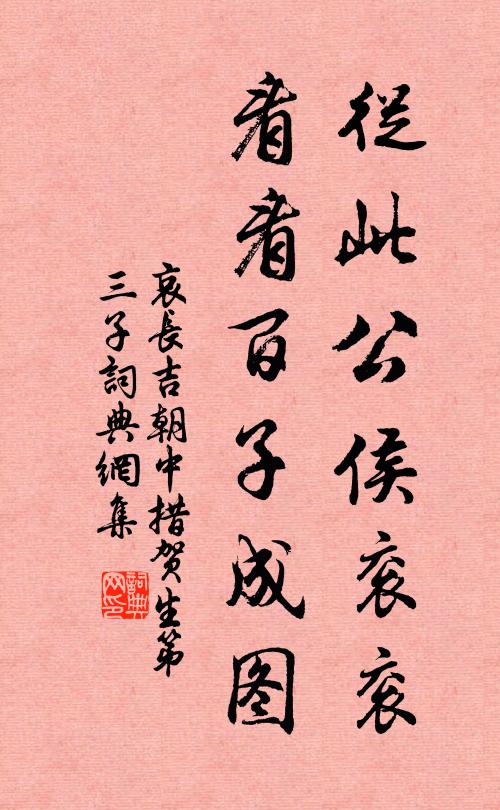 從此公侯衮衮
看看百子成图
哀長吉朝中措贺生第
三子詞典網集
詞典网印